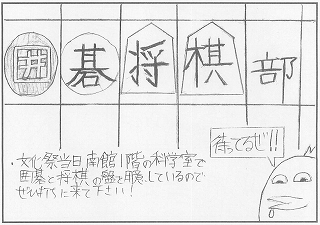 囲碁将棋部
待ってるぜ!!
・文化祭当日南館1階の科学室で
囲碁と将棋の盤を用意しているので
ぜひ打ちに来て下さい!